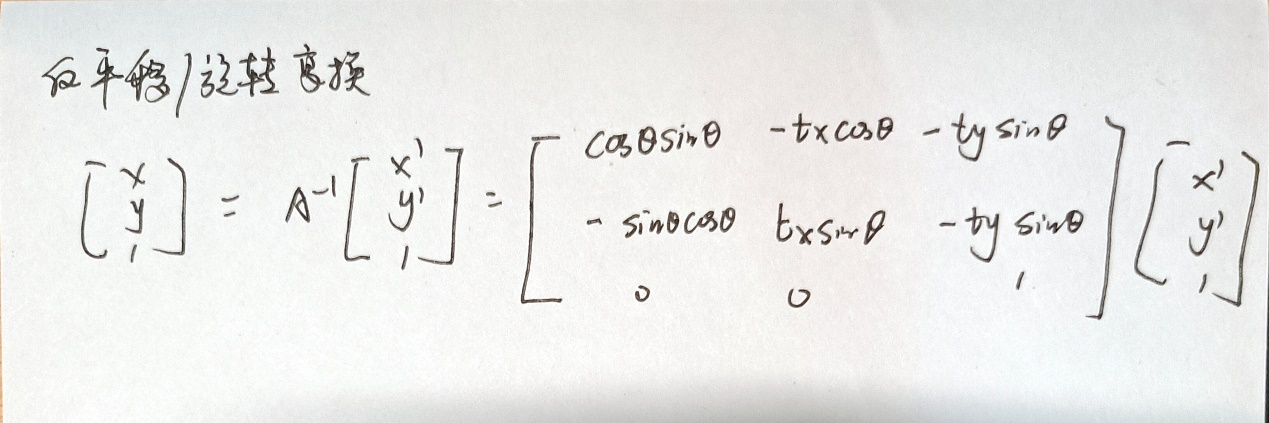 反平移/旋转变换
[x y 1] = A⁻¹ [x' y' 1] = [cosθsinθ -txcosθ -tysinθ
-sinθcosθ txsinθ -tysinθ
0 0 1] [x' y' 1]